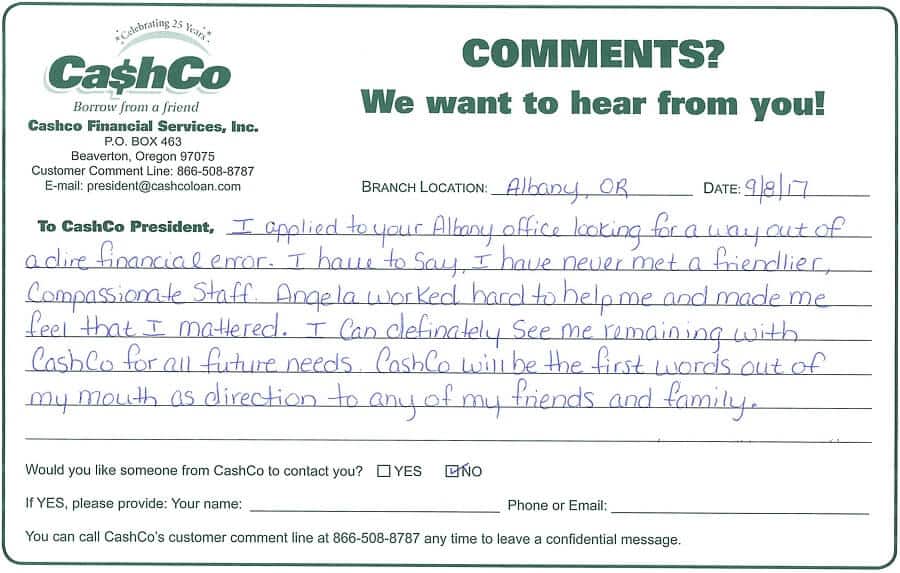 Celebrating 25 Years
Ca$hCo
Borrow from a friend
Cashco Financial Services, Inc.
P.O. BOX 463
Beaverton, Oregon 97075
Customer Comment Line: 866-508-8787
E-mail: president@cashcoloan.com
COMMENTS?
We want to hear from you!
BRANCH LOCATION: Albany, OR DATE: 9/8/17
To CashCo President, I applied to your Albany office looking for a way out of
a dire financial error. I have to say, I have never met a friendlier,
Compassionate Staff. Angela worked hard to help me and made me
feel that I mattered. I Can definately See me remaining with
CashCo for all future needs. CashCo will be the first words out of
my mouth as direction to any of my friends and family.
Would you like someone from CashCo to contact you? YES NO
If YES, please provide: Your name: Phone or Email:
You can call CashCo's customer comment line at 866-508-8787 any time to leave a confidential message.